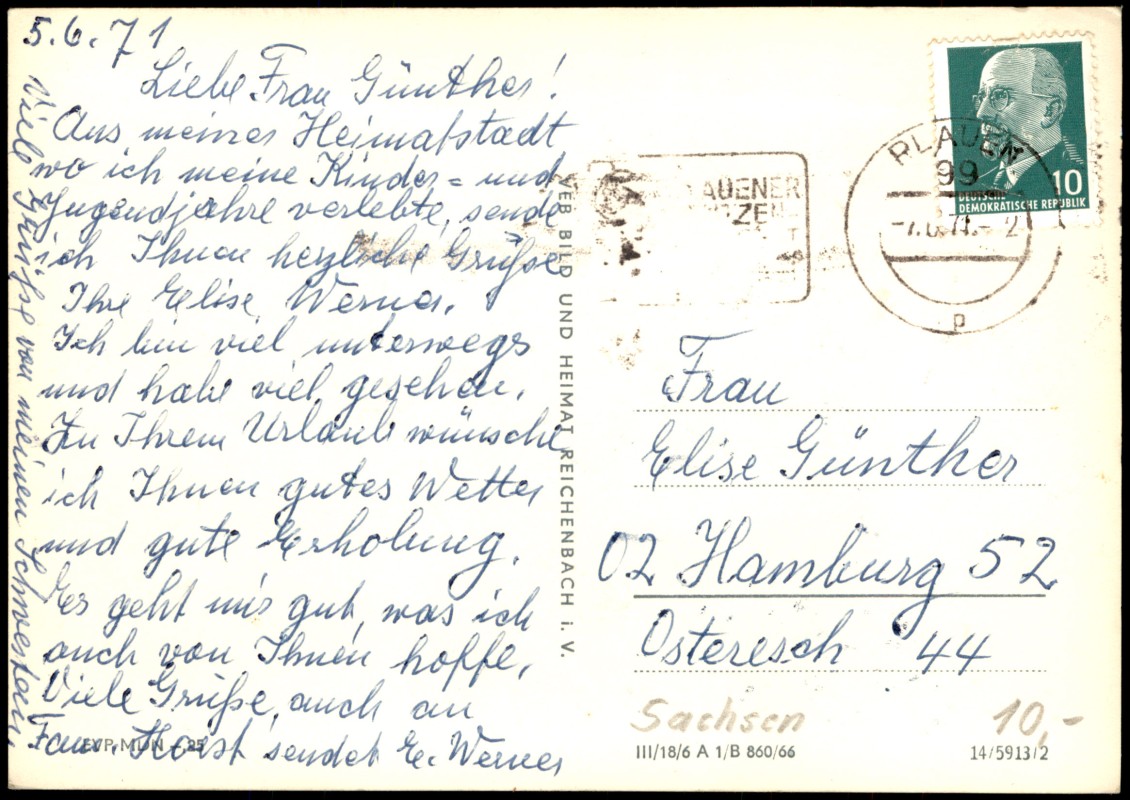 5.6.71
Liebe Frau Günther!
Aus meiner Heimatstadt
wo ich meine Kinder= und
Jugendjahre verlebte, sende
ich Ihnen herzliche Grüße
Ihre Elise Werner.
Ich bin viel unterwegs
und habe viel gesehen.
Zu Ihrem Urlaub wünsche
ich Ihnen gutes Wetter
und gute Erholung.
Es geht mir gut, was ich
auch von Ihnen hoffe.
Viele Grüße, auch an
Fam. Horst sendet E. Werner
Viele Grüße von meinen Schwestern.
EVP MDN -,25
VEB BILD UND HEIMAT REICHENBACH i. V.
AUENER
PLAUEN
99
7.6.71.- 2
p
10
DEUTSCHE
DEMOKRATISCHE REPUBLIK
Frau
Elise Günther
02 Hamburg 52
Osteresch 44
Sachsen 10,-
III/18/6 A 1/B 860/66
14/5913/2